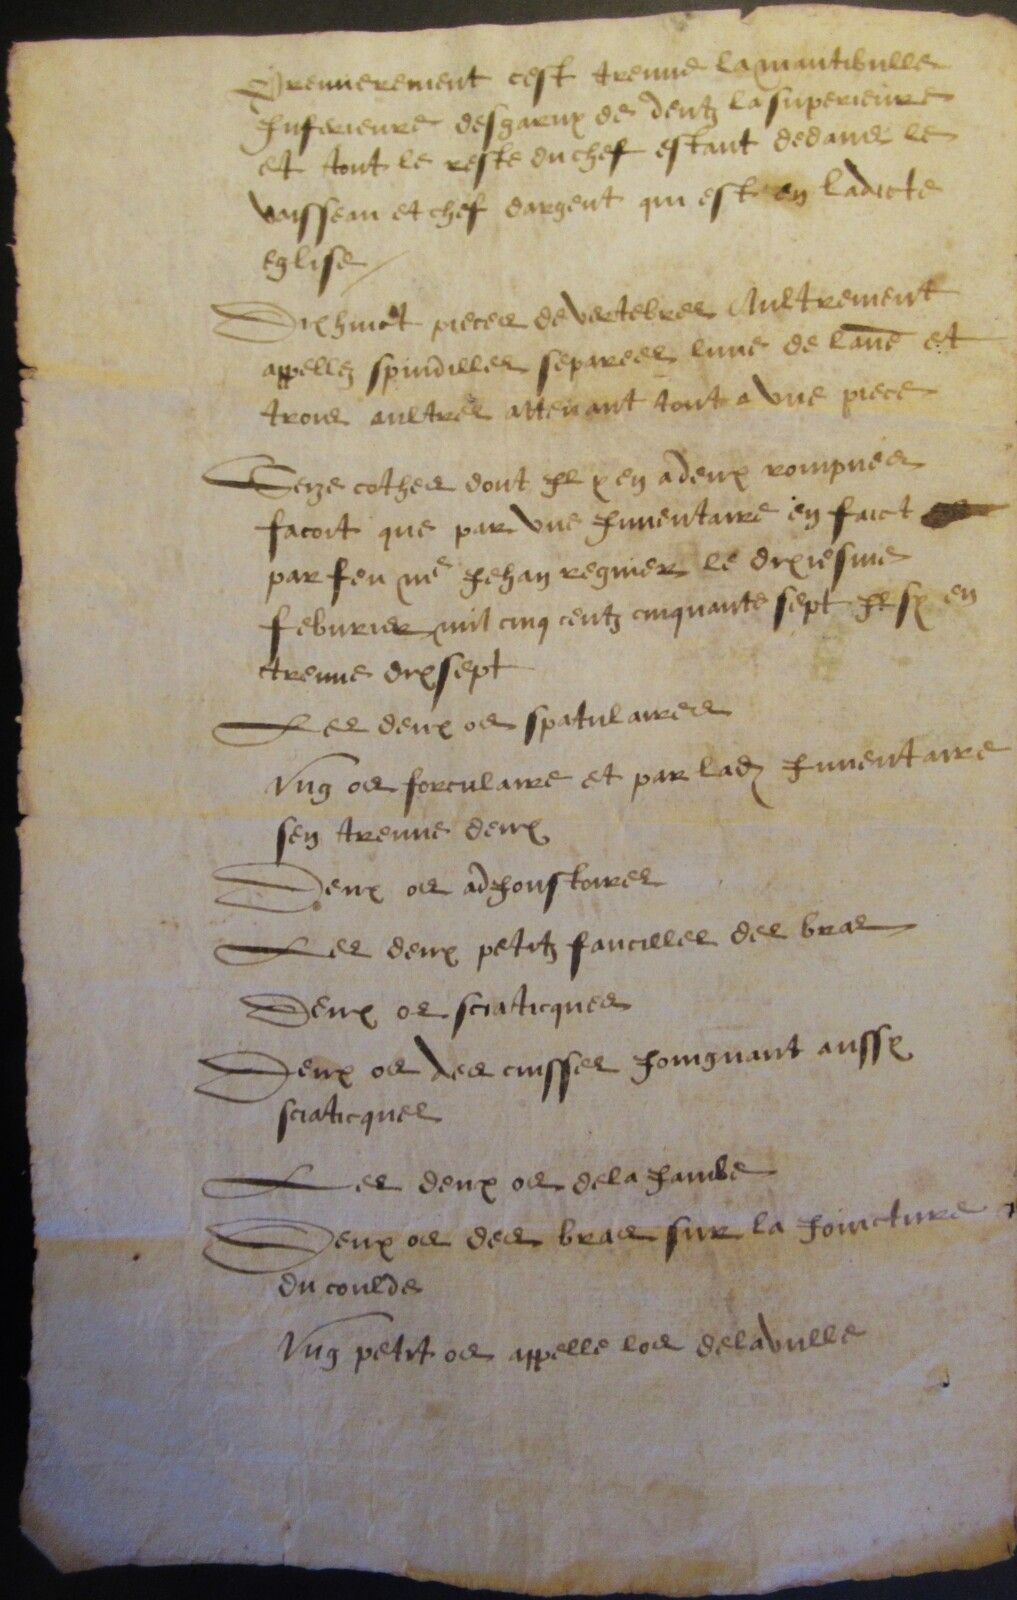 Premierement cest treuve la mantibulle
Inferieure desgarnx de dentz la superieure
et tout le reste du chef estant dedans le
vaisseau et chef dargent qui est en ladicte
eglise
Dix huict pieces de vertebres Aultrement
appellez spindilles separees lune de laue et
trois aultres attenant tout a une piece
Seize cothes dont Il y en a deux rompues
facoit que par une Inventaire en faict
par feu me Jehan regnier le dixiesme
feburier mil cinq centz cinquante sept Il sy en
treuve dix sept
Les deux os spatulaires
Ung os forculaire et par lad Inventaire
sen treuve deux
Deux os adjoustoires
Les deux petitz faucilles des bras
Deux os sciaticques
Deux os des cuisses Joingnant aussy
sciaticques
Les deux os de la Jambe
Deux os des bras sur la Joincture
du coulde
Ung petit os appelle los de lavulle